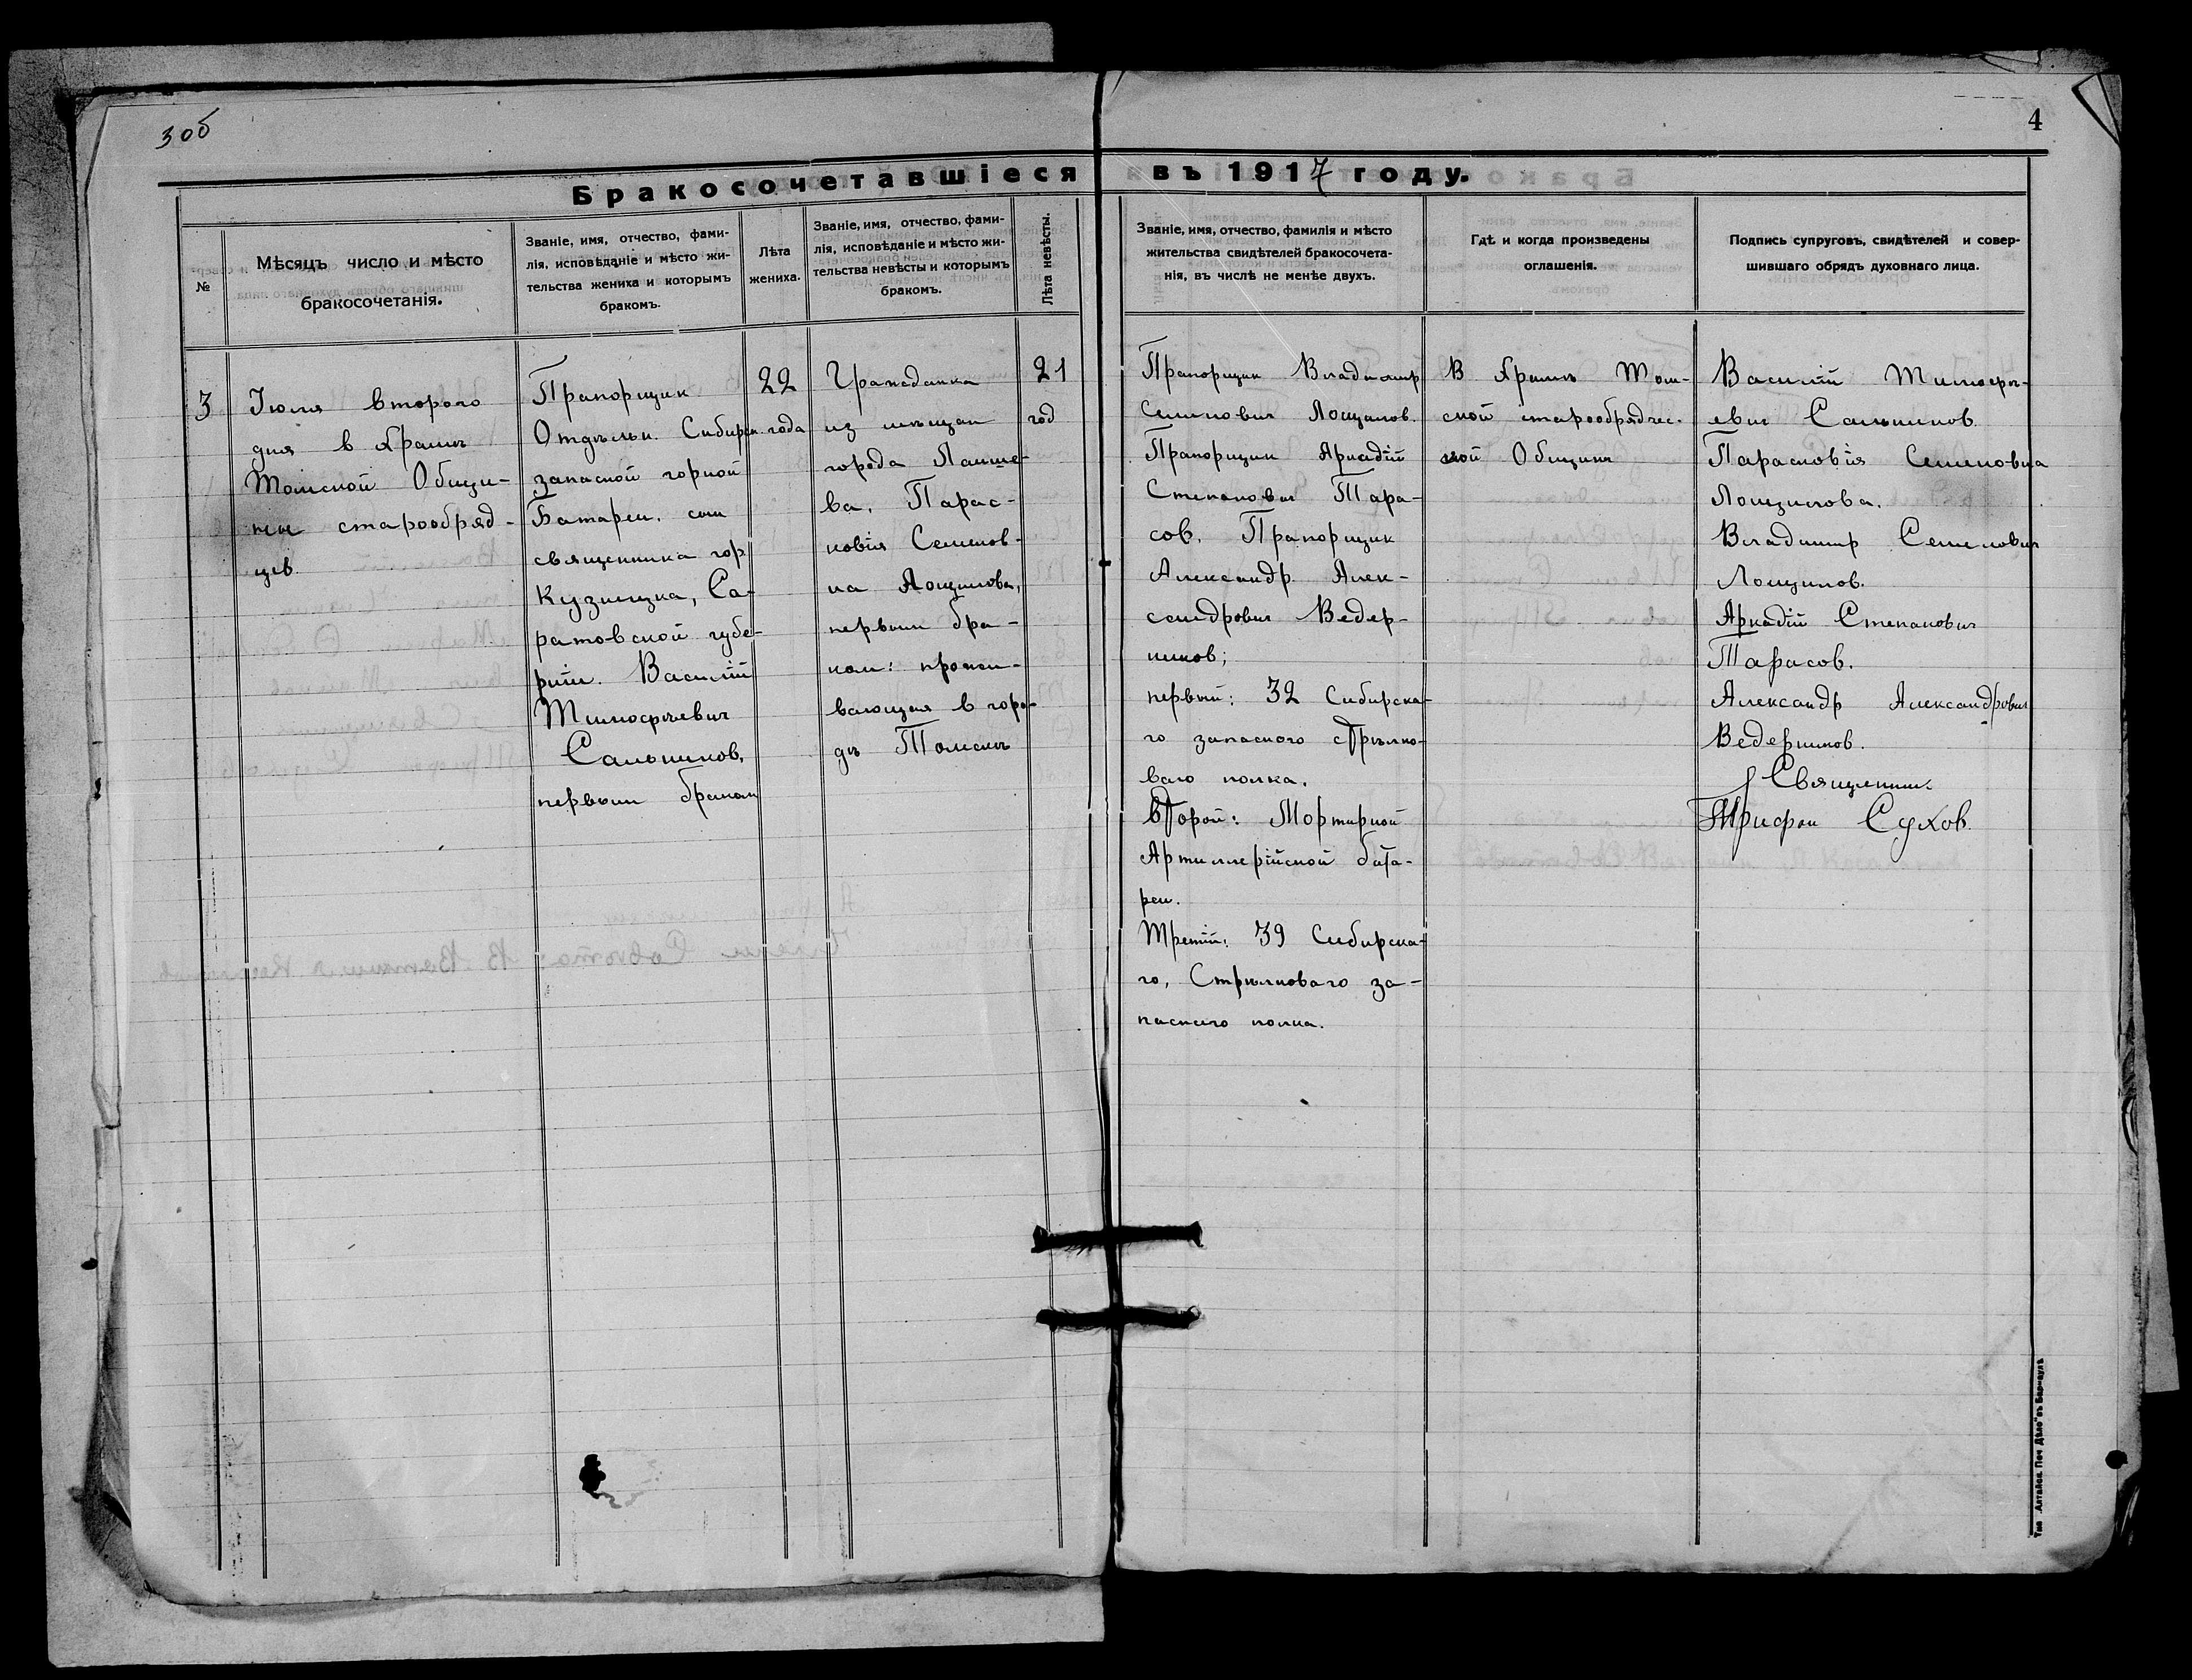 3 об
4
Бракосочетавшіеся въ 1917 году.
№
Мѣсяцъ число и мѣсто
бракосочетанія.
Званіе, имя, отчество, фами-
лія, исповѣданіе и мѣсто жи-
тельства жениха и которымъ
бракомъ.
Лѣта
жениха.
Званіе, имя, отчество, фами-
лія, исповѣданіе и мѣсто жи-
тельства невѣсты и которымъ
бракомъ.
Лѣта невѣсты.
Званіе, имя, отчество, фамилія и мѣсто
жительства свидѣтелей бракосочета-
нія, въ числѣ не менѣе двухъ.
Гдѣ и когда произведены
оглашенія.
Подпись супруговъ, свидѣтелей и совер-
шившаго обрядъ духовнаго лица.
3
Іюля второго
дня в храмѣ
Томской Общи-
ны старообряд-
цев.
Прапорщик
Отдѣльн. Сибирск.
запасной горной
Батареи, сын
священника гор.
Кузнецка, Са-
ратовской губе-
рніи. Василій
Тимофѣевич
Сальников,
первым браком
22
года
Гражданка
из мѣщан
города Лаише-
ва, Парас-
ковія Семенов-
на Лощилова,
первым бра-
ком: прожи-
вающая в горо-
дѣ Томскѣ
21
год
Прапорщик Владимир
Семенович Лощилов.
Прапорщик Аркадій
Степанович Тара-
сов, Прапорщик
Александр Алек-
сандрович Ведер-
ников;
первый: 32 Сибирска-
го запасного стрѣлко-
ваго полка.
второй: Мортирной
Артиллерійской бата-
реи.
Третій: 39 Сибирска-
го, Стрѣлковаго за-
пасного полка.
В храмѣ Том-
ской старообрядчес-
кой Общины
Василій Тимофѣ-
евич Сальников.
Парасковія Семеновна
Лощилова.
Владимир Семенович
Лощилов.
Аркадій Степанович
Тарасов.
Александр Александрович
Ведерников.
Священник
Трифон Сухов.
Тип. „Алтайск. Печ. Дѣло" въ Барнаулѣ